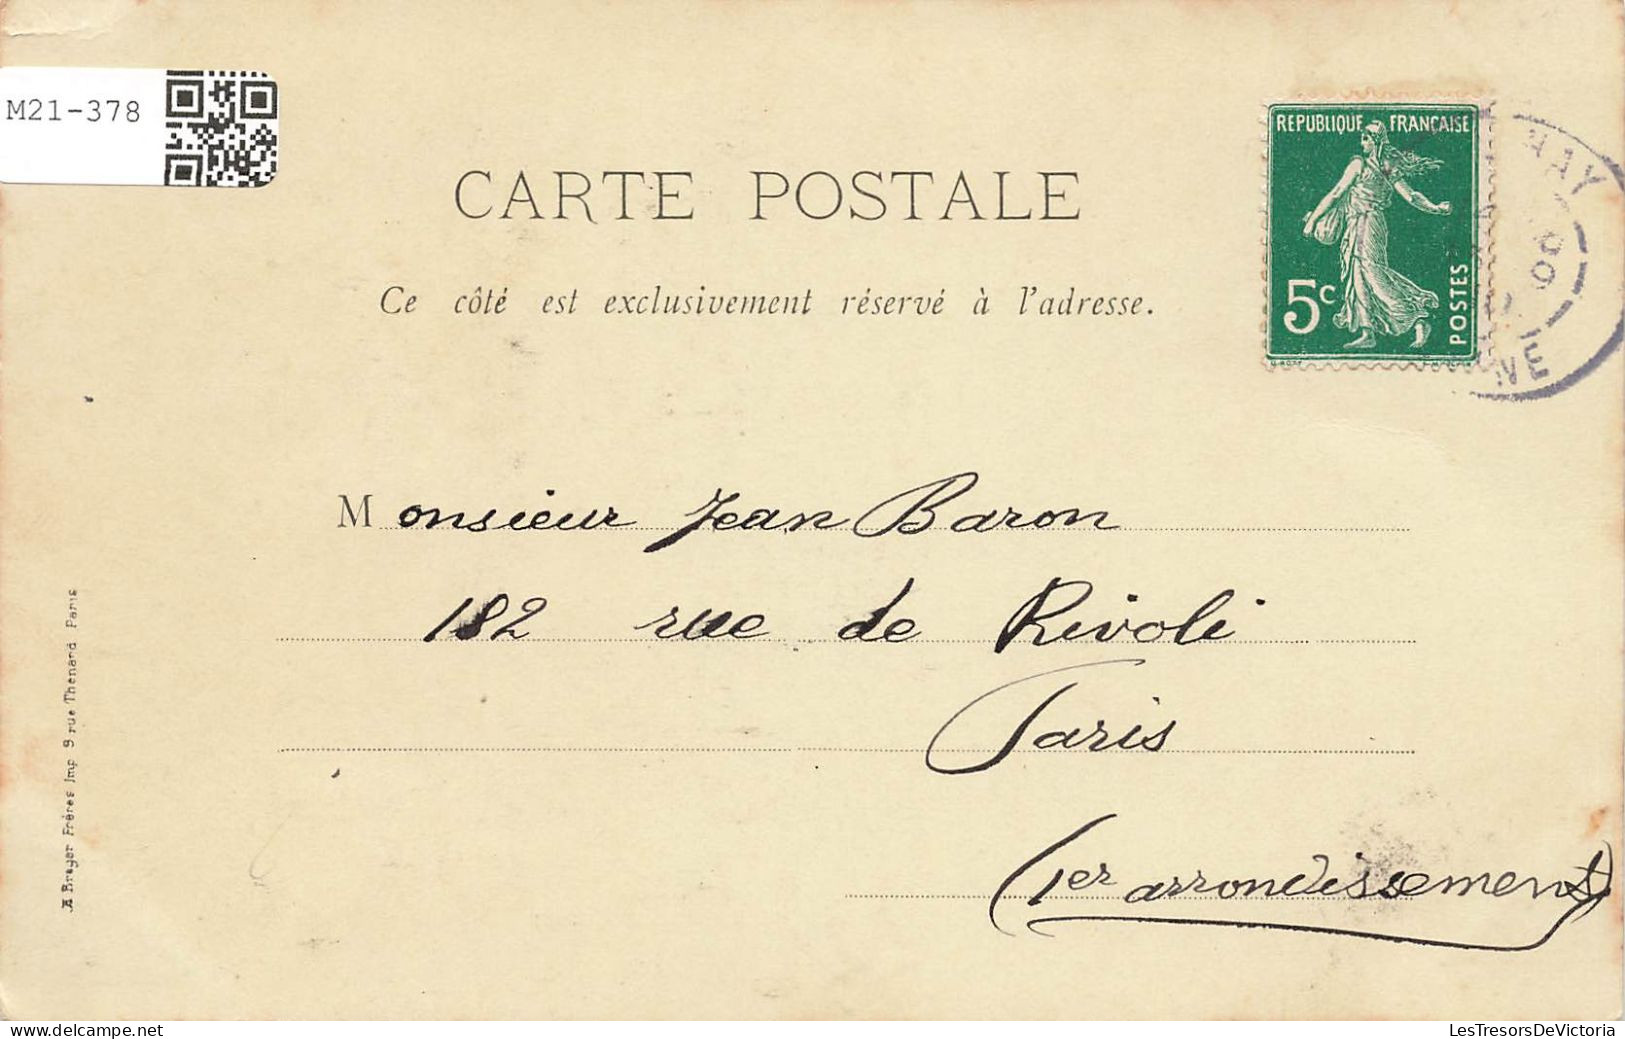 M21-378
CARTE POSTALE
Ce côté est exclusivement réservé à l'adresse.
REPUBLIQUE FRANÇAISE
5c
POSTES
Monsieur Jean Baron
182 rue de Rivoli
Paris
(1er arrondissement)
A Breger Frères Imp 9 rue Thenard Paris
LesTresorsDeVictoria
delcampe.net